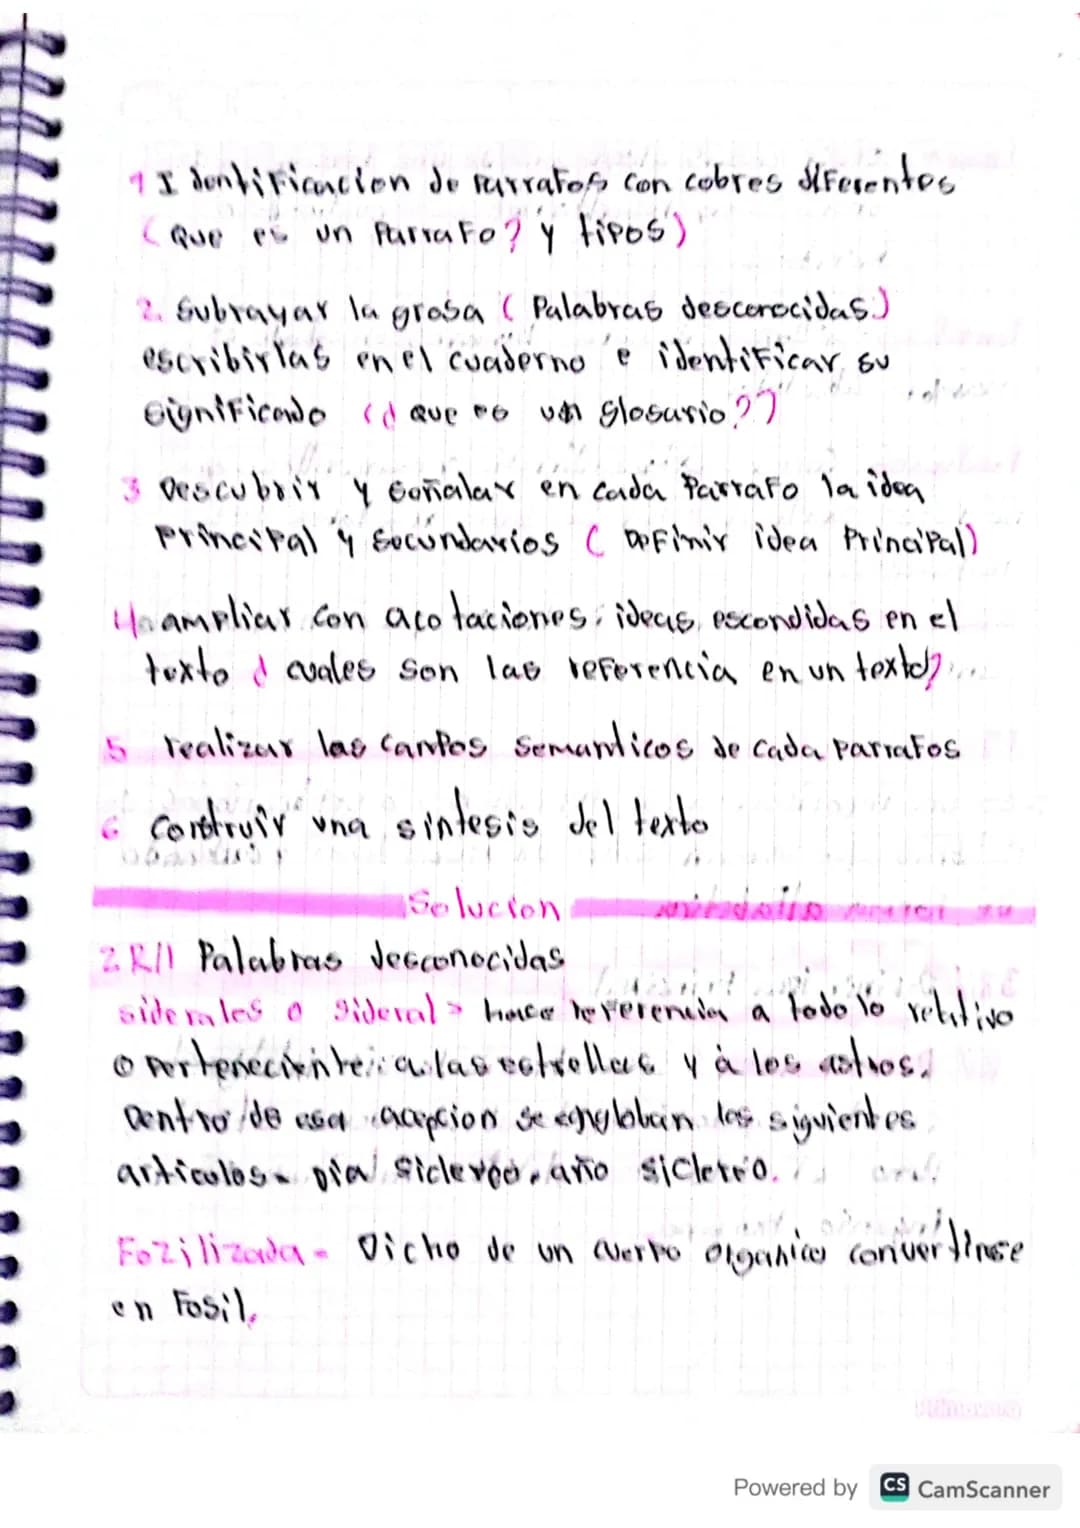 1 Identificacion de parrafos con cobres diferentes
(Que es un Parrafo? y tipos)
2. Subrayar la grosa (Palabras desconocidas)
escribirlas en el cuaderno e identificar su
significado (¿ que es un glosario??
3 Descubrir y señalar en cada Parrafo la idea
Principal y secundarios ( Definir idea Principal)
4. ampliar con acotaciones, ideas escondidas en el
texto ¿ cuales son las referencia en un texto?
5 realizar las campos semanticos de cada parrafos
6 Construir una sintesis del texto
Solucion
2 R// Palabras desconocidas
siderales o sideral > hace referencia a todo lo relativo
o perteneciente a las estrellas y a los astros.
Dentro de esa acepcion se engloban los siguientes
articulos- Dia sidereo, año sidereo.
Fozilizada = Dicho de un cuerpo organico convertirse
en Fosil.
Powered by CS CamScanner